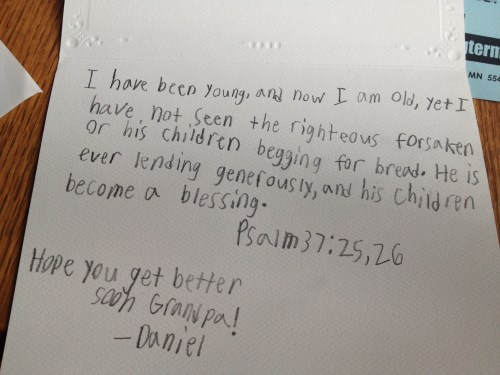 I have been young, and now I am old, yet I
have not seen the righteous forsaken
or his children begging for bread. He is
ever lending generously, and his children
become a blessing.
Psalm 37:25,26
Hope you get better
soon Grandpa!
—Daniel
term
MN 554